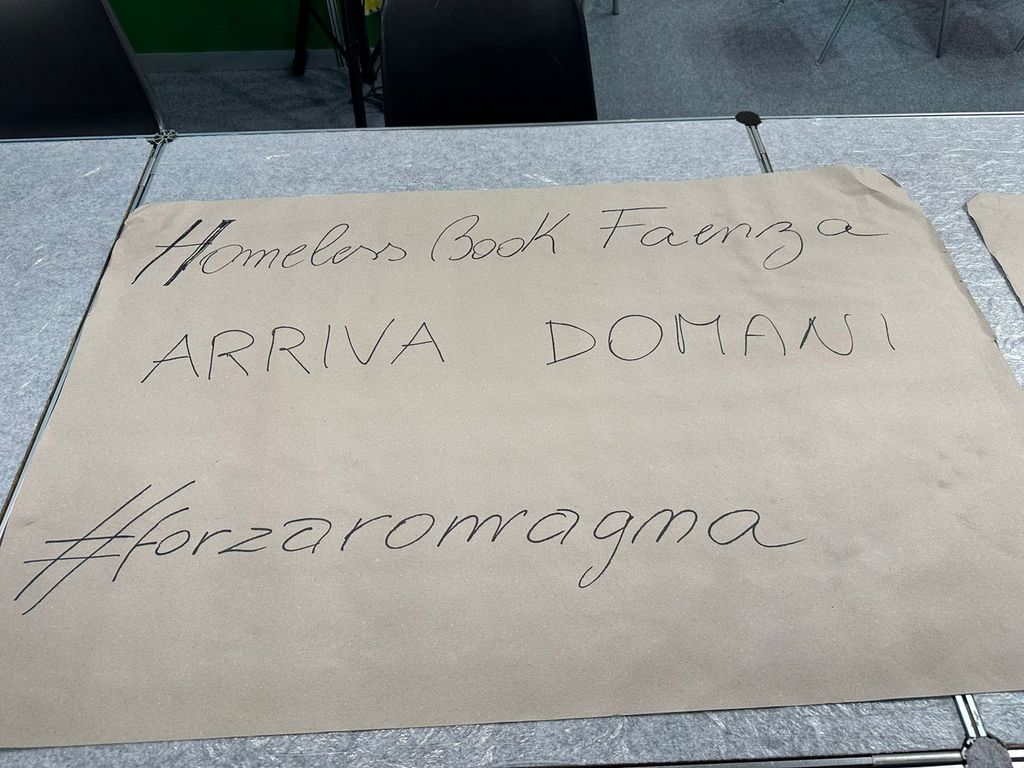 Homeless Book Faenza
ARRIVA DOMANI
#forzaromagna